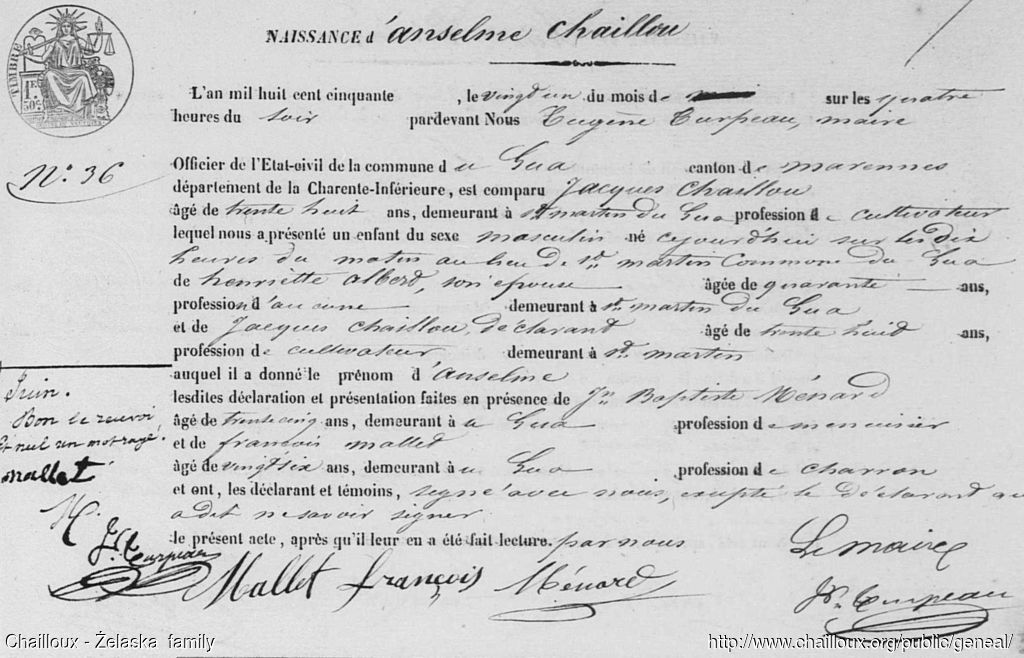 NAISSANCE d'anselme Chaillou
TIMBRE
1F
50c
L'an mil huit cent cinquante , le vingt un du mois de mai sur les quatre
heures du soir pardevant Nous Eugène Turpeau, maire
N.° 36
Officier de l'Etat-civil de la commune du Gua canton de marennes
département de la Charente-Inférieure, est comparu Jacques Chaillou
âgé de trente huit ans, demeurant à St martin du Gua profession de cultivateur
lequel nous a présenté un enfant du sexe masculin né cejourd'hui sur les dix
heures du matin au lieu de St martin Commune du Gua
de henriette alberd, son épouse âgée de quarante ans,
profession d'aucune demeurant à St martin du Gua
et de Jacques Chaillou, déclarant âgé de trente huit ans,
profession de cultivateur demeurant à St martin
auquel il a donné le prénom d'anselme
lesdites déclaration et présentation faites en présence de Jn Baptiste Ménard
âgé de trente cinq ans, demeurant au Gua profession de menuisier
et de françois mallet
âgé de vingt six ans, demeurant au Gua profession de charron
et ont, les déclarant et témoins, signé avec nous, excepté le déclarant qui
a dit ne savoir signer
le présent acte, après qu'il leur en a été fait lecture. par nous
Juin.
Bon le renvoi,
Et nul un mot rayé.
Mallet
M.
Turpeau
Mallet françois Ménard
Le maire
Turpeau
Chailloux - Żelaska family
http://www.chailloux.org/public/geneal/